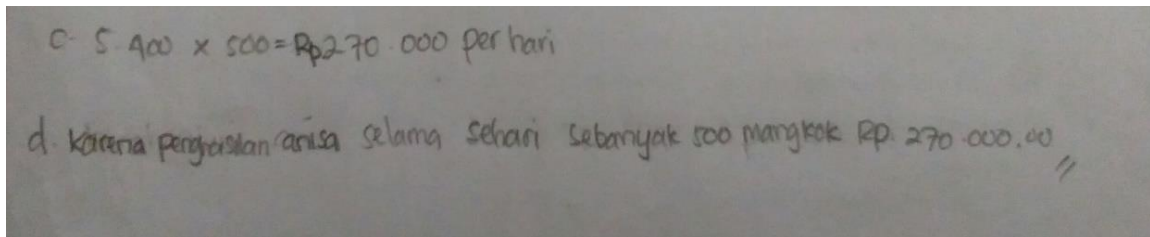 c. 5.400 x 500 = Rp270.000 per hari
d. Karena penghasilan anisa selama sehari sebanyak 500 mangkok Rp. 270.000,00 //